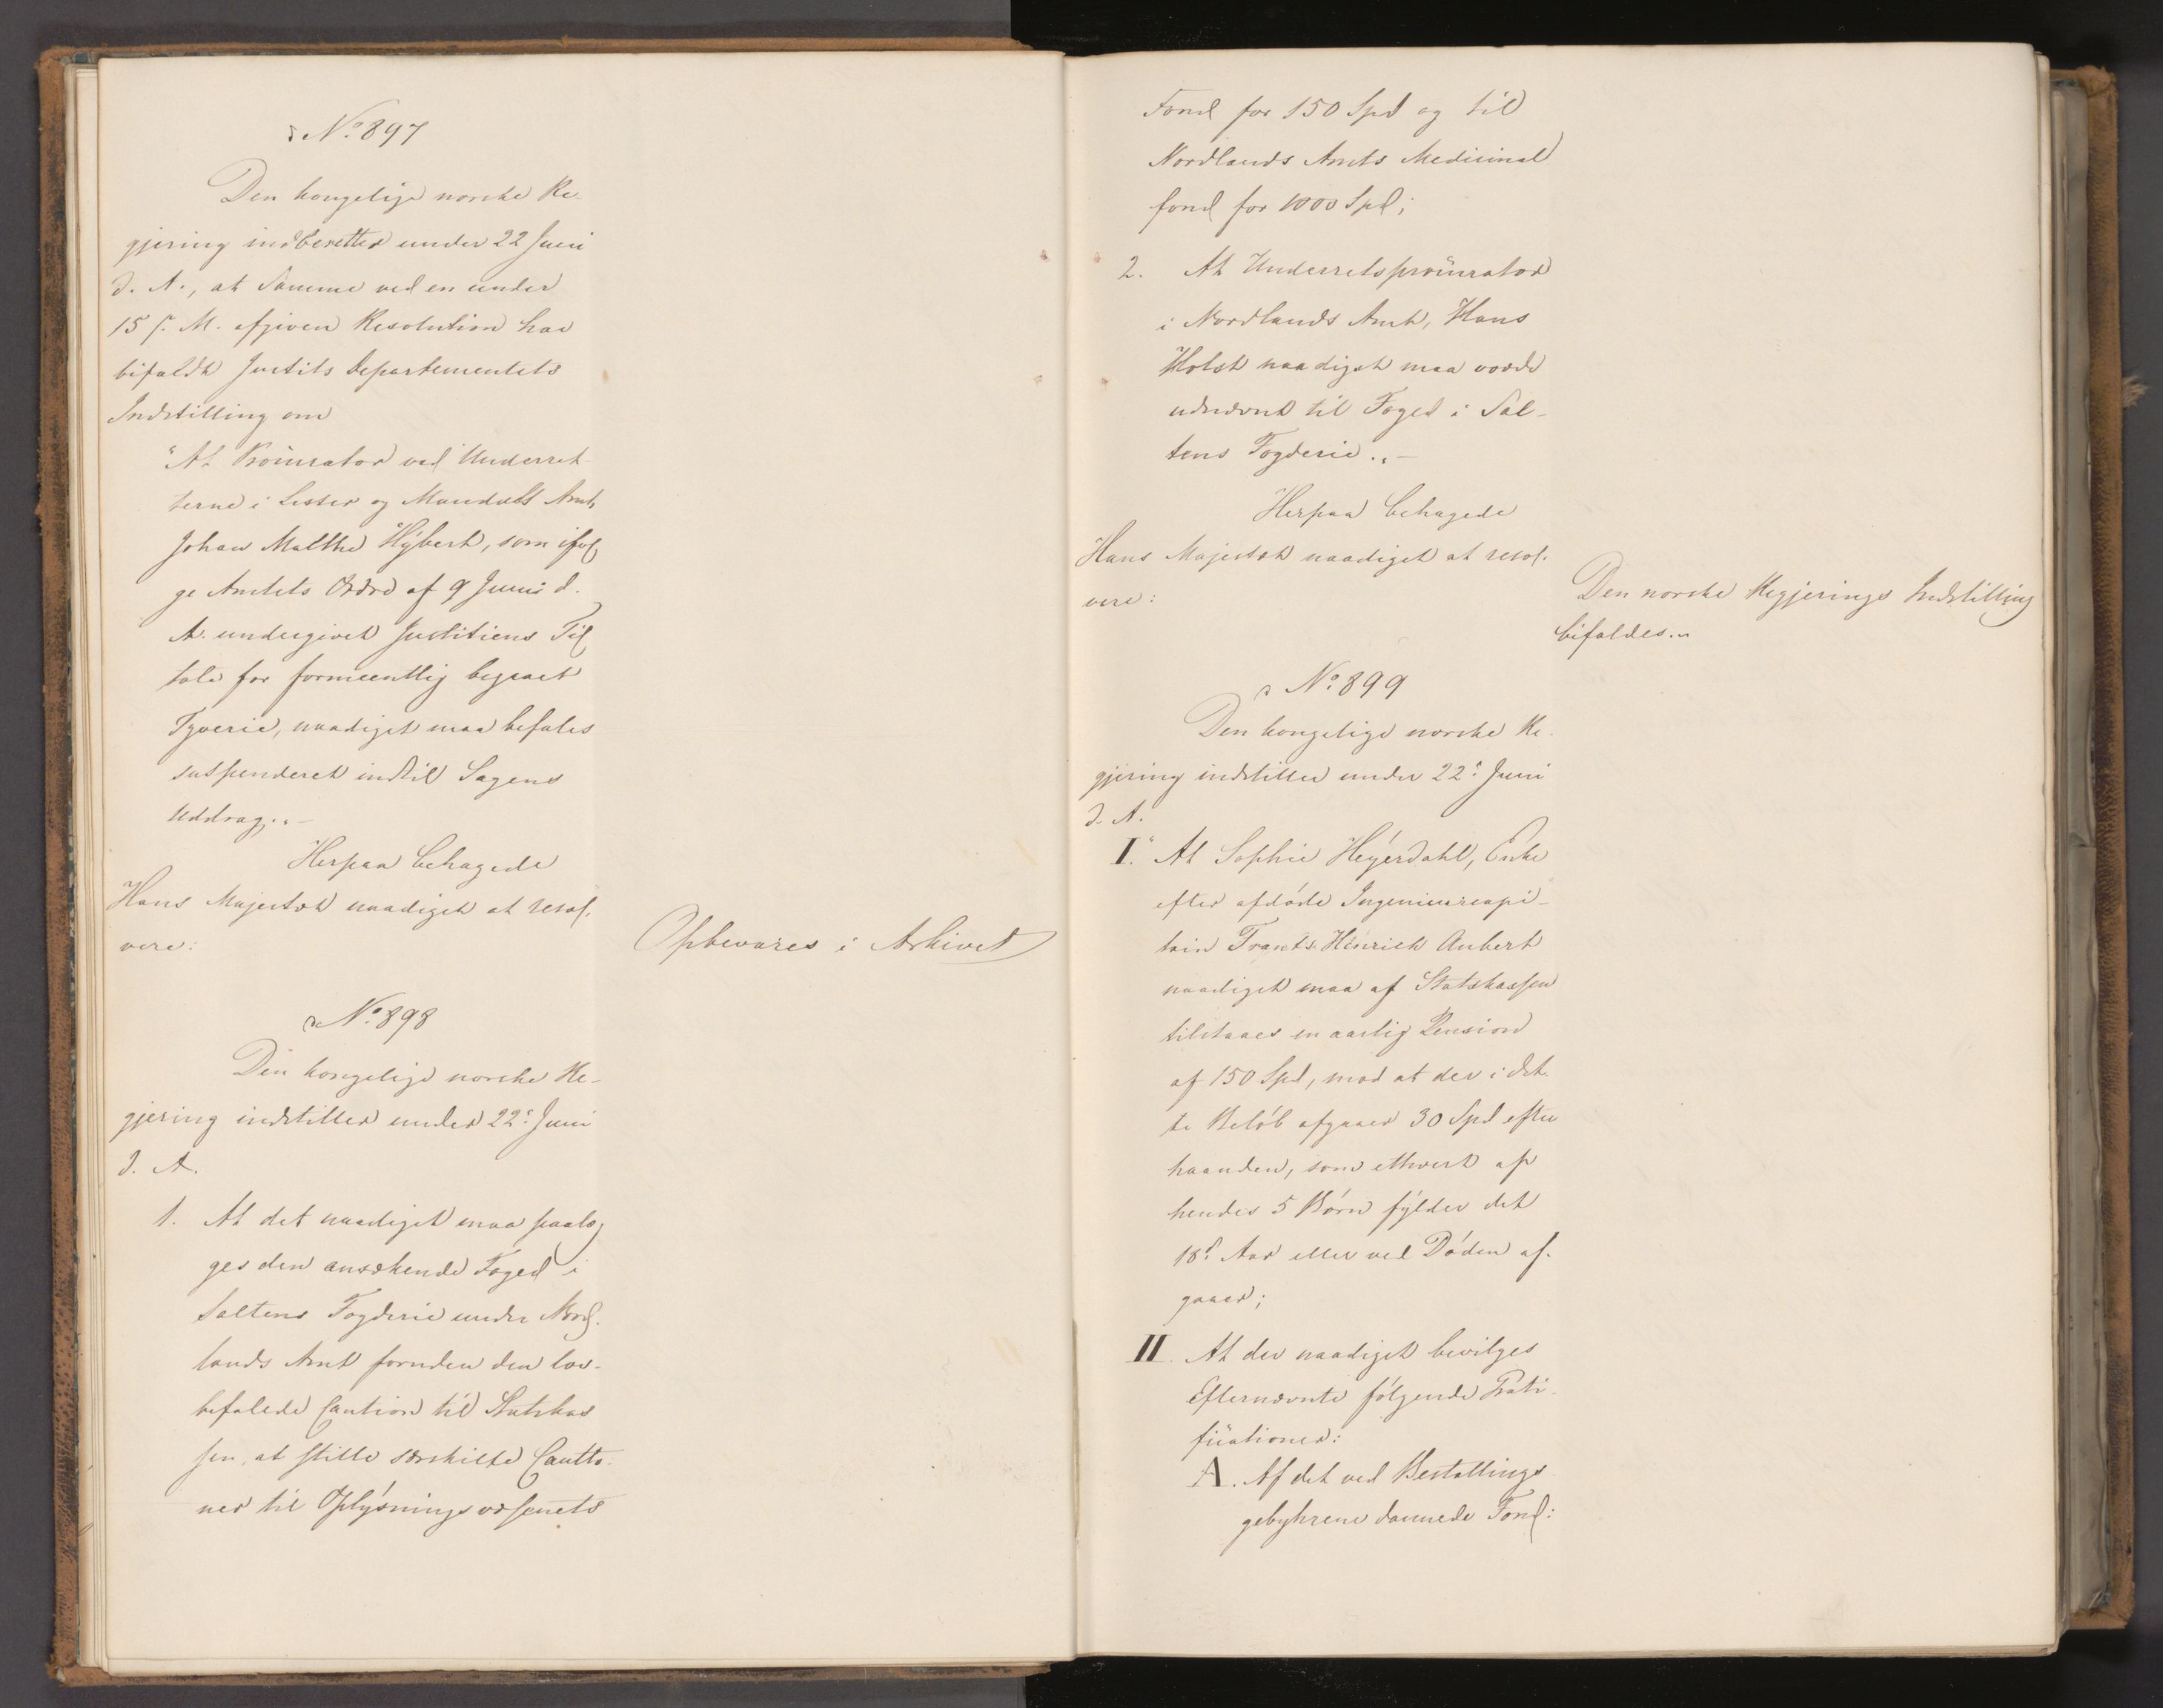 No. 897
Den kongelige norske Re-
gjering indberetter under 22 Juni
d. A., at Samme ved en under
15 s. M. afgiven Resolution har
bifaldt Justits Departementets
Indstilling om
"At Procurator ved Underret
terne i Lister og Mandals Amt,
Johan Malthe Hÿbert, som iføl
ge Amtets Ordre af 9 Juni d.
A. undergivet Justitiens Til
tale for formeentlig begaaet
Tyverie, naadigst maa befales
suspenderet indtil Sagens
Uddrag." –
Herpaa behagede
Hans Majestæt naadigst at resol-
vere:
Opbevares i Arkivet
No. 898
Den kongelige norske Re-
gjering indstiller under 22: Juni
d. A.
1. At det naadigst maa paalæg
ges den ansøkende Foged i
Saltens Fogderie under Nord-
lands Amt foruden den lov-
befalede Caution til Statskas
sen, at stille særskilte Cautio-
ner til Oplysningsvæsenets
Fond for 150 Spd og til
Nordlands Amts Medicinal
fond for 1000 Spd;
2. At Underretsprocurator
i Nordlands Amt, Hans
Holst naadigst maa vorde
udnævnt til Foged i Sal-
tens Fogderie." –
Herpaa behagede
Hans Majestæt naadigst at resol-
vere:
Den norske Regjerings Indstilling
bifaldes.
No. 899
Den kongelige norske Re-
gjering indstiller under 22: Juni
d. A.
I. "At Sophie Heÿerdahl, Enke
efter afdøde Ingenieurcapi-
tain Frants Hinrich Aubert
naadigst maa af Statskassen
tilstaaes en aarlig Pension
af 150 Spd, mod at der i det-
te Beløb afgaaer 30 Spd efter
haanden, som ethvert af
hendes 5 Børn fÿlder det
18d Aar eller ved Døden af-
gaaer;
II. At der naadigst bevilges
Efternævnte følgende Grati-
ficationer:
A. Af det ved Bestallings
gebyhrene dannede Fond: